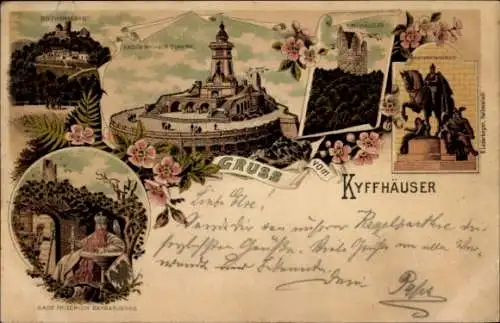 ROTHENBURG
KAISER WILHELM DENKMAL
KYFFHÄUSER
GRUSS vom
KYFFHÄUSER
KAISER FRIEDRICH BARBAROSSA
Liebe Else.
Sende dir von unserer Kegelparthie die
herzlichsten Grüße. Viele Grüße an alle Ver-
wandte und Bekannte. dein Papa